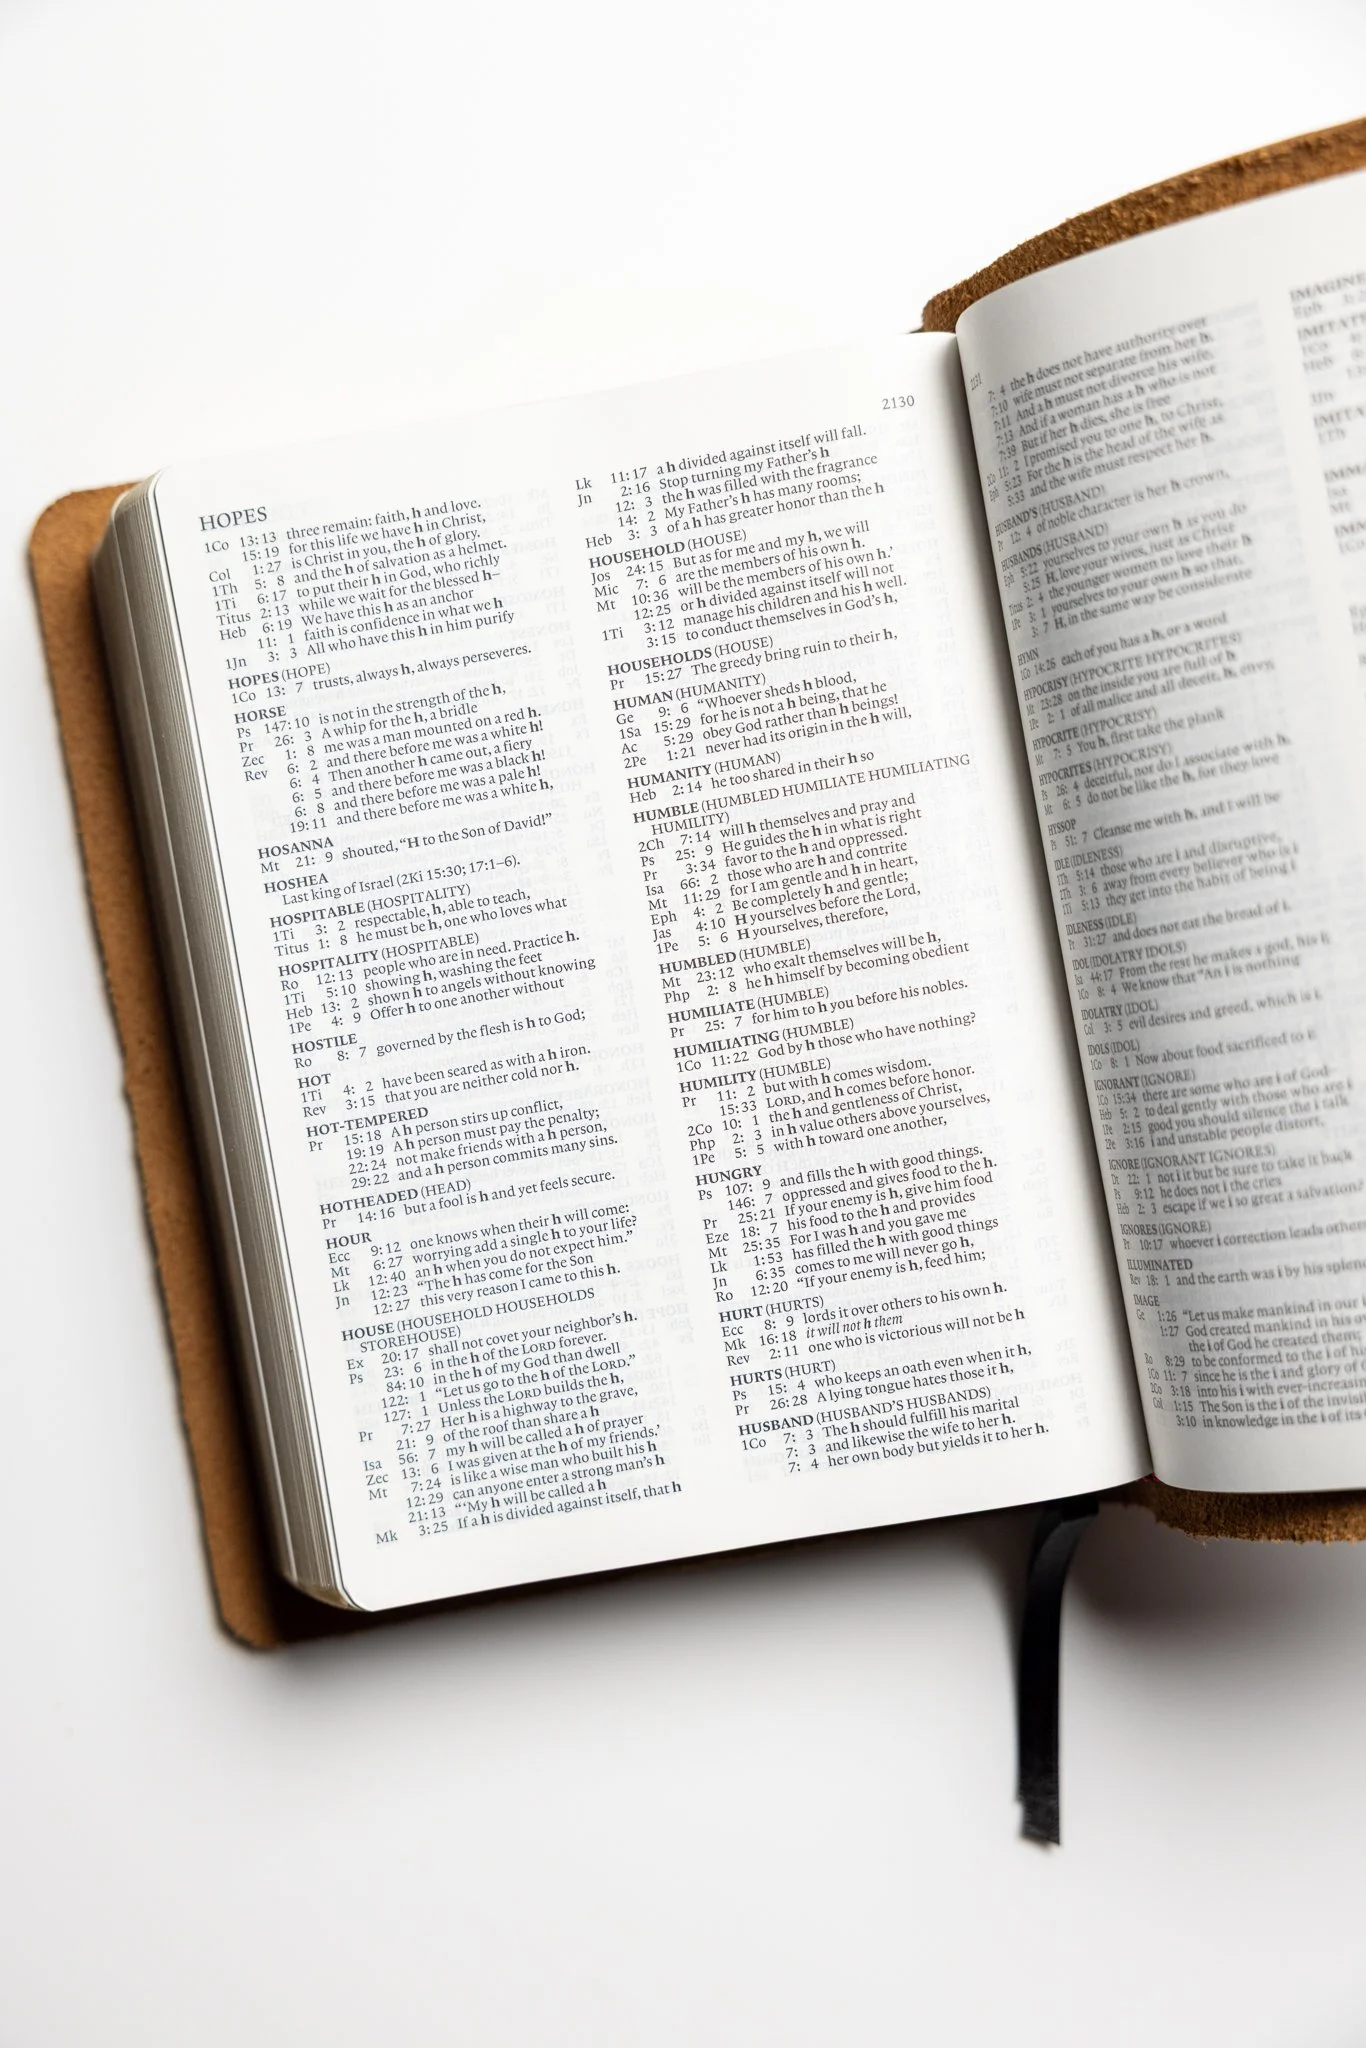 HOPES
1Co 13:13 three remain: faith, h and love.
15:19 for this life we have h in Christ,
Col 1:27 is Christ in you, the h of glory.
1Th 5: 8 and the h of salvation as a helmet.
1Ti 6:17 to put their h in God, who richly
Titus 2:13 while we wait for the blessed h–
Heb 6:19 We have this h as an anchor
11: 1 faith is confidence in what we h
1Jn 3: 3 All who have this h in him purify
HOPES (HOPE)
1Co 13: 7 trusts, always h, always perseveres.
HORSE
Ps 147:10 is not in the strength of the h,
Pr 26: 3 A whip for the h, a bridle
Zec 1: 8 me was a man mounted on a red h.
Rev 6: 2 and there before me was a white h!
6: 4 Then another h came out, a fiery
6: 5 and there before me was a black h!
6: 8 and there before me was a pale h!
19:11 and there before me was a white h,
HOSANNA
Mt 21: 9 shouted, “H to the Son of David!”
HOSHEA
Last king of Israel (2Ki 15:30; 17:1–6).
HOSPITABLE (HOSPITALITY)
1Ti 3: 2 respectable, h, able to teach,
Titus 1: 8 he must be h, one who loves what
HOSPITALITY (HOSPITABLE)
Ro 12:13 people who are in need. Practice h.
1Ti 5:10 showing h, washing the feet
Heb 13: 2 shown h to angels without knowing
1Pe 4: 9 Offer h to one another without
HOSTILE
Ro 8: 7 governed by the flesh is h to God;
HOT
1Ti 4: 2 have been seared as with a h iron.
Rev 3:15 that you are neither cold nor h.
HOT-TEMPERED
Pr 15:18 A h person stirs up conflict,
19:19 A h person must pay the penalty;
22:24 not make friends with a h person,
29:22 and a h person commits many sins.
HOTHEADED (HEAD)
Pr 14:16 but a fool is h and yet feels secure.
HOUR
Ecc 9:12 one knows when their h will come:
Mt 6:27 worrying add a single h to your life?
Lk 12:40 an h when you do not expect him.”
Jn 12:23 “The h has come for the Son
12:27 this very reason I came to this h.
HOUSE (HOUSEHOLD HOUSEHOLDS
STOREHOUSE)
Ex 20:17 shall not covet your neighbor’s h.
Ps 23: 6 in the h of the LORD forever.
84:10 in the h of my God than dwell
122: 1 “Let us go to the h of the LORD.”
127: 1 Unless the LORD builds the h,
Pr 7:27 Her h is a highway to the grave,
21: 9 of the roof than share a h
Isa 56: 7 my h will be called a h of prayer
Zec 13: 6 I was given at the h of my friends.’
Mt 7:24 is like a wise man who built his h
12:29 can anyone enter a strong man’s h
21:13 “‘My h will be called a h
Mk 3:25 If a h is divided against itself, that h
2130
Lk 11:17 a h divided against itself will fall.
Jn 2:16 Stop turning my Father’s h
12: 3 the h was filled with the fragrance
14: 2 My Father’s h has many rooms;
Heb 3: 3 of a h has greater honor than the h
HOUSEHOLD (HOUSE)
Jos 24:15 But as for me and my h, we will
Mic 7: 6 are the members of his own h.
Mt 10:36 will be the members of his own h.’
12:25 or h divided against itself will not
1Ti 3:12 manage his children and his h well.
3:15 to conduct themselves in God’s h,
HOUSEHOLDS (HOUSE)
Pr 15:27 The greedy bring ruin to their h,
HUMAN (HUMANITY)
Ge 9: 6 “Whoever sheds h blood,
1Sa 15:29 for he is not a h being, that he
Ac 5:29 obey God rather than h beings!
2Pe 1:21 never had its origin in the h will,
HUMANITY (HUMAN)
Heb 2:14 he too shared in their h so
HUMBLE (HUMBLED HUMILIATE HUMILIATING
HUMILITY)
2Ch 7:14 will h themselves and pray and
Ps 25: 9 He guides the h in what is right
Pr 3:34 favor to the h and oppressed.
Isa 66: 2 those who are h and contrite
Mt 11:29 for I am gentle and h in heart,
Eph 4: 2 Be completely h and gentle;
Jas 4:10 H yourselves before the Lord,
1Pe 5: 6 H yourselves, therefore,
HUMBLED (HUMBLE)
Mt 23:12 who exalt themselves will be h,
Php 2: 8 he h himself by becoming obedient
HUMILIATE (HUMBLE)
Pr 25: 7 for him to h you before his nobles.
HUMILIATING (HUMBLE)
1Co 11:22 God by h those who have nothing?
HUMILITY (HUMBLE)
Pr 11: 2 but with h comes wisdom.
15:33 LORD, and h comes before honor.
2Co 10: 1 the h and gentleness of Christ,
Php 2: 3 in h value others above yourselves,
1Pe 5: 5 with h toward one another,
HUNGRY
Ps 107: 9 and fills the h with good things.
146: 7 oppressed and gives food to the h.
Pr 25:21 If your enemy is h, give him food
Eze 18: 7 his food to the h and provides
Mt 25:35 For I was h and you gave me
Lk 1:53 has filled the h with good things
Jn 6:35 comes to me will never go h,
Ro 12:20 “If your enemy is h, feed him;
HURT (HURTS)
Ecc 8: 9 lords it over others to his own h.
Mk 16:18 it will not h them
Rev 2:11 one who is victorious will not be h
HURTS (HURT)
Ps 15: 4 who keeps an oath even when it h,
Pr 26:28 A lying tongue hates those it h,
HUSBAND (HUSBAND’S HUSBANDS)
1Co 7: 3 The h should fulfill his marital
7: 3 and likewise the wife to her h.
7: 4 her own body but yields it to her h.
2131
7: 4 the h does not have authority over
7:10 wife must not separate from her h.
7:11 And a h must not divorce his wife.
7:13 And if a woman has a h who is not
7:39 But if her h dies, she is free
2Co 11: 2 I promised you to one h, to Christ,
Eph 5:23 For the h is the head of the wife as
5:33 and the wife must respect her h.
HUSBAND’S (HUSBAND)
Pr 12: 4 of noble character is her h crown,
HUSBANDS (HUSBAND)
Eph 5:22 yourselves to your own h as you do
5:25 H, love your wives, just as Christ
Titus 2: 4 the younger women to love their h
1Pe 3: 1 yourselves to your own h so that,
3: 7 H, in the same way be considerate
HYMN
1Co 14:26 each of you has a h, or a word
HYPOCRISY (HYPOCRITE HYPOCRITES)
Mt 23:28 on the inside you are full of h
1Pe 2: 1 of all malice and all deceit, h, envy,
HYPOCRITE (HYPOCRISY)
Mt 7: 5 You h, first take the plank
HYPOCRITES (HYPOCRISY)
Ps 26: 4 deceitful, nor do I associate with h.
Mt 6: 5 do not be like the h, for they love
HYSSOP
Ps 51: 7 Cleanse me with h, and I will be
IDLE (IDLENESS)
1Th 5:14 those who are i and disruptive,
2Th 3: 6 away from every believer who is i
1Ti 5:13 they get into the habit of being i
IDLENESS (IDLE)
Pr 31:27 and does not eat the bread of i.
IDOL (IDOLATRY IDOLS)
Isa 44:17 From the rest he makes a god, his i;
1Co 8: 4 We know that “An i is nothing
IDOLATRY (IDOL)
Col 3: 5 evil desires and greed, which is i.
IDOLS (IDOL)
1Co 8: 1 Now about food sacrificed to i:
IGNORANT (IGNORE)
1Co 15:34 there are some who are i of God–
Heb 5: 2 to deal gently with those who are i
1Pe 2:15 good you should silence the i talk
2Pe 3:16 i and unstable people distort,
IGNORE (IGNORANT IGNORES)
Dt 22: 1 not i it but be sure to take it back
Ps 9:12 he does not i the cries
Heb 2: 3 escape if we i so great a salvation?
IGNORES (IGNORE)
Pr 10:17 whoever i correction leads others
ILLUMINATED
Rev 18: 1 and the earth was i by his
IMAGE
Ge 1:26 “Let us make mankind in our
1:27 God created mankind in his
the i of God he created them;
Ro 8:29 to be conformed to the i of his
1Co 11: 7 since he is the i and glory of
2Co 3:18 into his i with
Col 1:15 The Son is the i of the
3:10 in knowledge in the i of its
Eph
1Co
Heb